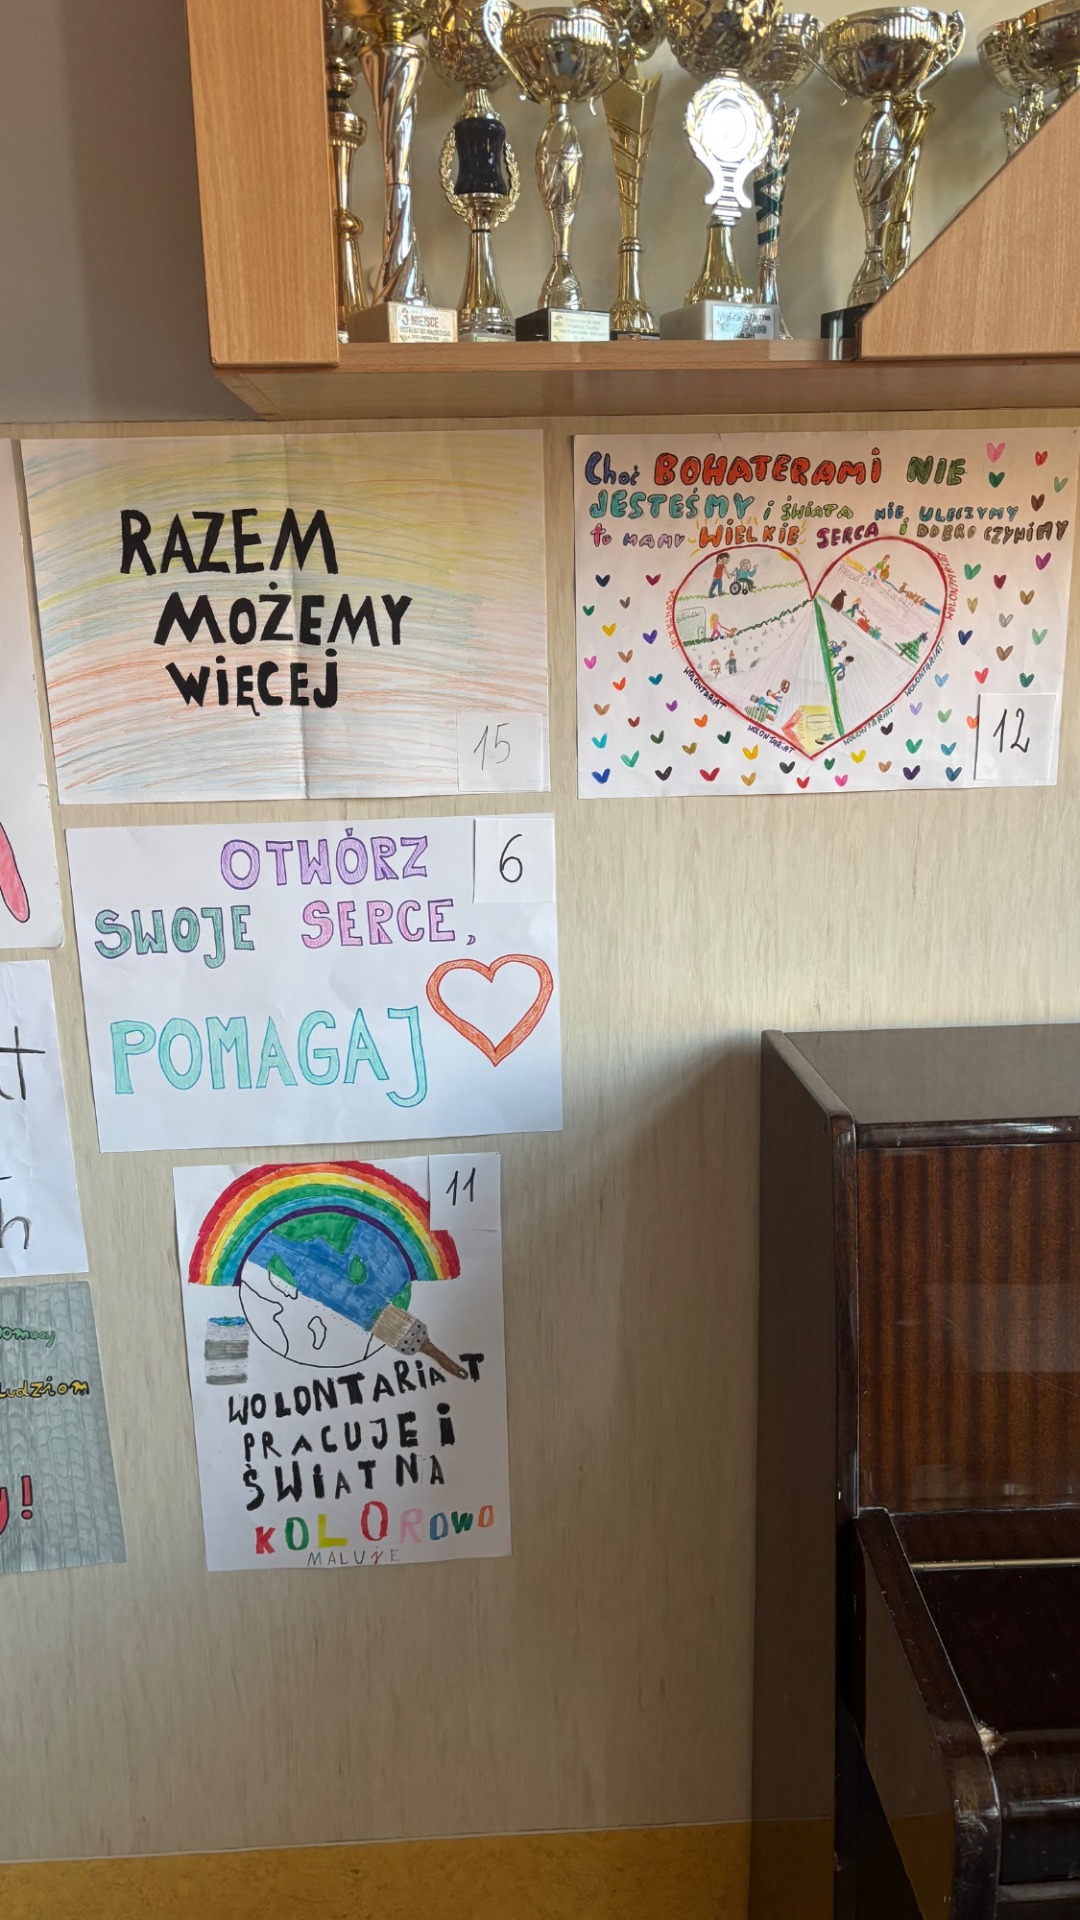 3 MIEJSCE
RAZEM
MOŻEMY
WIĘCEJ
15
Choć BOHATERAMI NIE
JESTEŚMY i ŚWIATA NIE ULECZYMY
to MAMY WIELKIE SERCA i DOBRO CZYNIMY
WOLONTARIAT
WOLONTARIAT
WOLONTARIAT
WOLONTARIAT
12
OTWÓRZ
6
SWOJE SERCE,
POMAGAJ
11
WOLONTARIAT
PRACUJE I
ŚWIAT NA
KOLOROWO
MALUJE
ludziom
y!